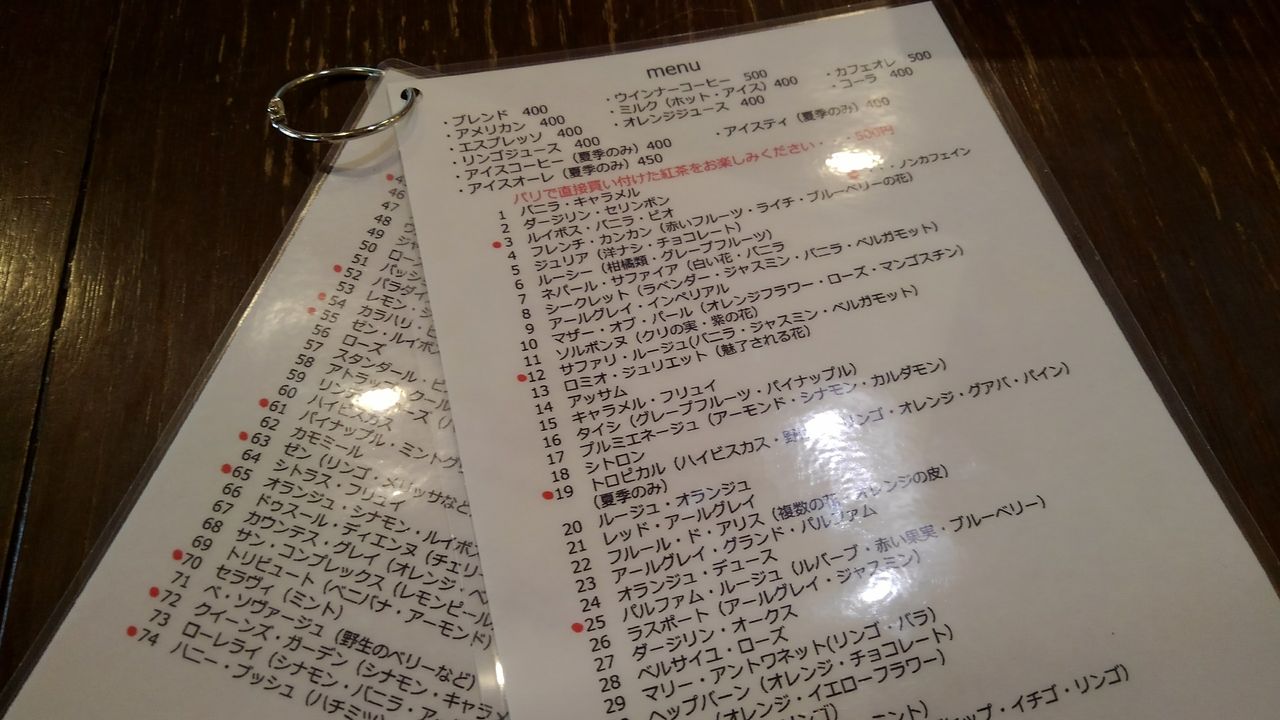 menu
・ブレンド 400
・ウインナーコーヒー 500
・カフェオレ 500
・アメリカン 400
・ミルク（ホット・アイス）400
・コーラ 400
・エスプレッソ 400
・オレンジジュース 400
・リンゴジュース 400
・アイスコーヒー（夏季のみ）400
・アイスティ（夏季のみ）400
・アイスオーレ（夏季のみ）450
パリで直接買い付けた紅茶をお楽しみください・・・500円
・ノンカフェイン
1 バニラ・キャラメル
2 ダージリン・セリンボン
●3 ルイボス・バニラ・ビオ
4 フレンチ・カンカン（赤いフルーツ・ライチ・ブルーベリーの花）
5 ジュリア（洋ナシ・チョコレート）
6 ルーシー（柑橘類・グレープフルーツ）
7 ネパール・サファイア（白い花・バニラ
8 シークレット（ラベンダー・ジャスミン・バニラ・ベルガモット）
9 アールグレイ・インペリアル
10 マザー・オブ・パール（オレンジフラワー・ローズ・マンゴスチン）
11 ソルボンヌ（クリの実・紫の花）
●12 サファリ・ルージュ(バニラ・ジャスミン・ベルガモット）
13 ロミオ・ジュリエット（魅了される花）
14 アッサム
15 キャラメル・フリュイ
16 タイシ（グレープフルーツ・パイナップル）
17 プルミエネージュ（アーモンド・シナモン・カルダモン）
18 シトロン
●19 トロピカル（ハイビスカス・リンゴ・オレンジ・グアバ・パイン）
（夏季のみ）
20 ルージュ・オランジュ
21 レッド・アールグレイ
22 フルール・ド・アリス（複数の花・オレンジの皮）
23 アールグレイ・グランド・パルファム
24 オランジュ・デュース
●25 パルファム・ルージュ（ルバーブ・赤い果実・ブルーベリー）
26 ラスポート（アールグレイ・ジャスミン）
27 ダージリン・オークス
28 ベルサイユ・ローズ
29 マリー・アントワネット(リンゴ・バラ）
ヘップバーン（オレンジ・チョコレート）
（オレンジ・イエローフラワー）
リンゴ）
ミント）
イチゴ・リンゴ）
46
47
48
49
50
51
●52
53
54
55
56 ゼン・ルイボ
57 ローズ
58 スタンダール・
59
60
●61 ハイビスカス
62 パイナップル・ミント
●63 カモミール
64 ゼン（リンゴ・メリッサなど）
●65 シトラス・フリュイ
66 オランジュ・シナモン・ルイボ
67 ドゥスール・ティエンヌ（チェリ
68 カウンテス・グレイ（オレンジ・ベ
69 サン・コンプレックス（レモンピール
●70 トリビュート（ベニバナ・アーモンド）
71 セラヴィ（ミント）
●72 ペ・ソヴァージュ（野生のベリーなど）
73 クイーンズ・ガーデン（シナモン・キャラメ
●74 ローレライ（シナモン・バニラ・ア
ハニー・ブッシュ（ハチミツ